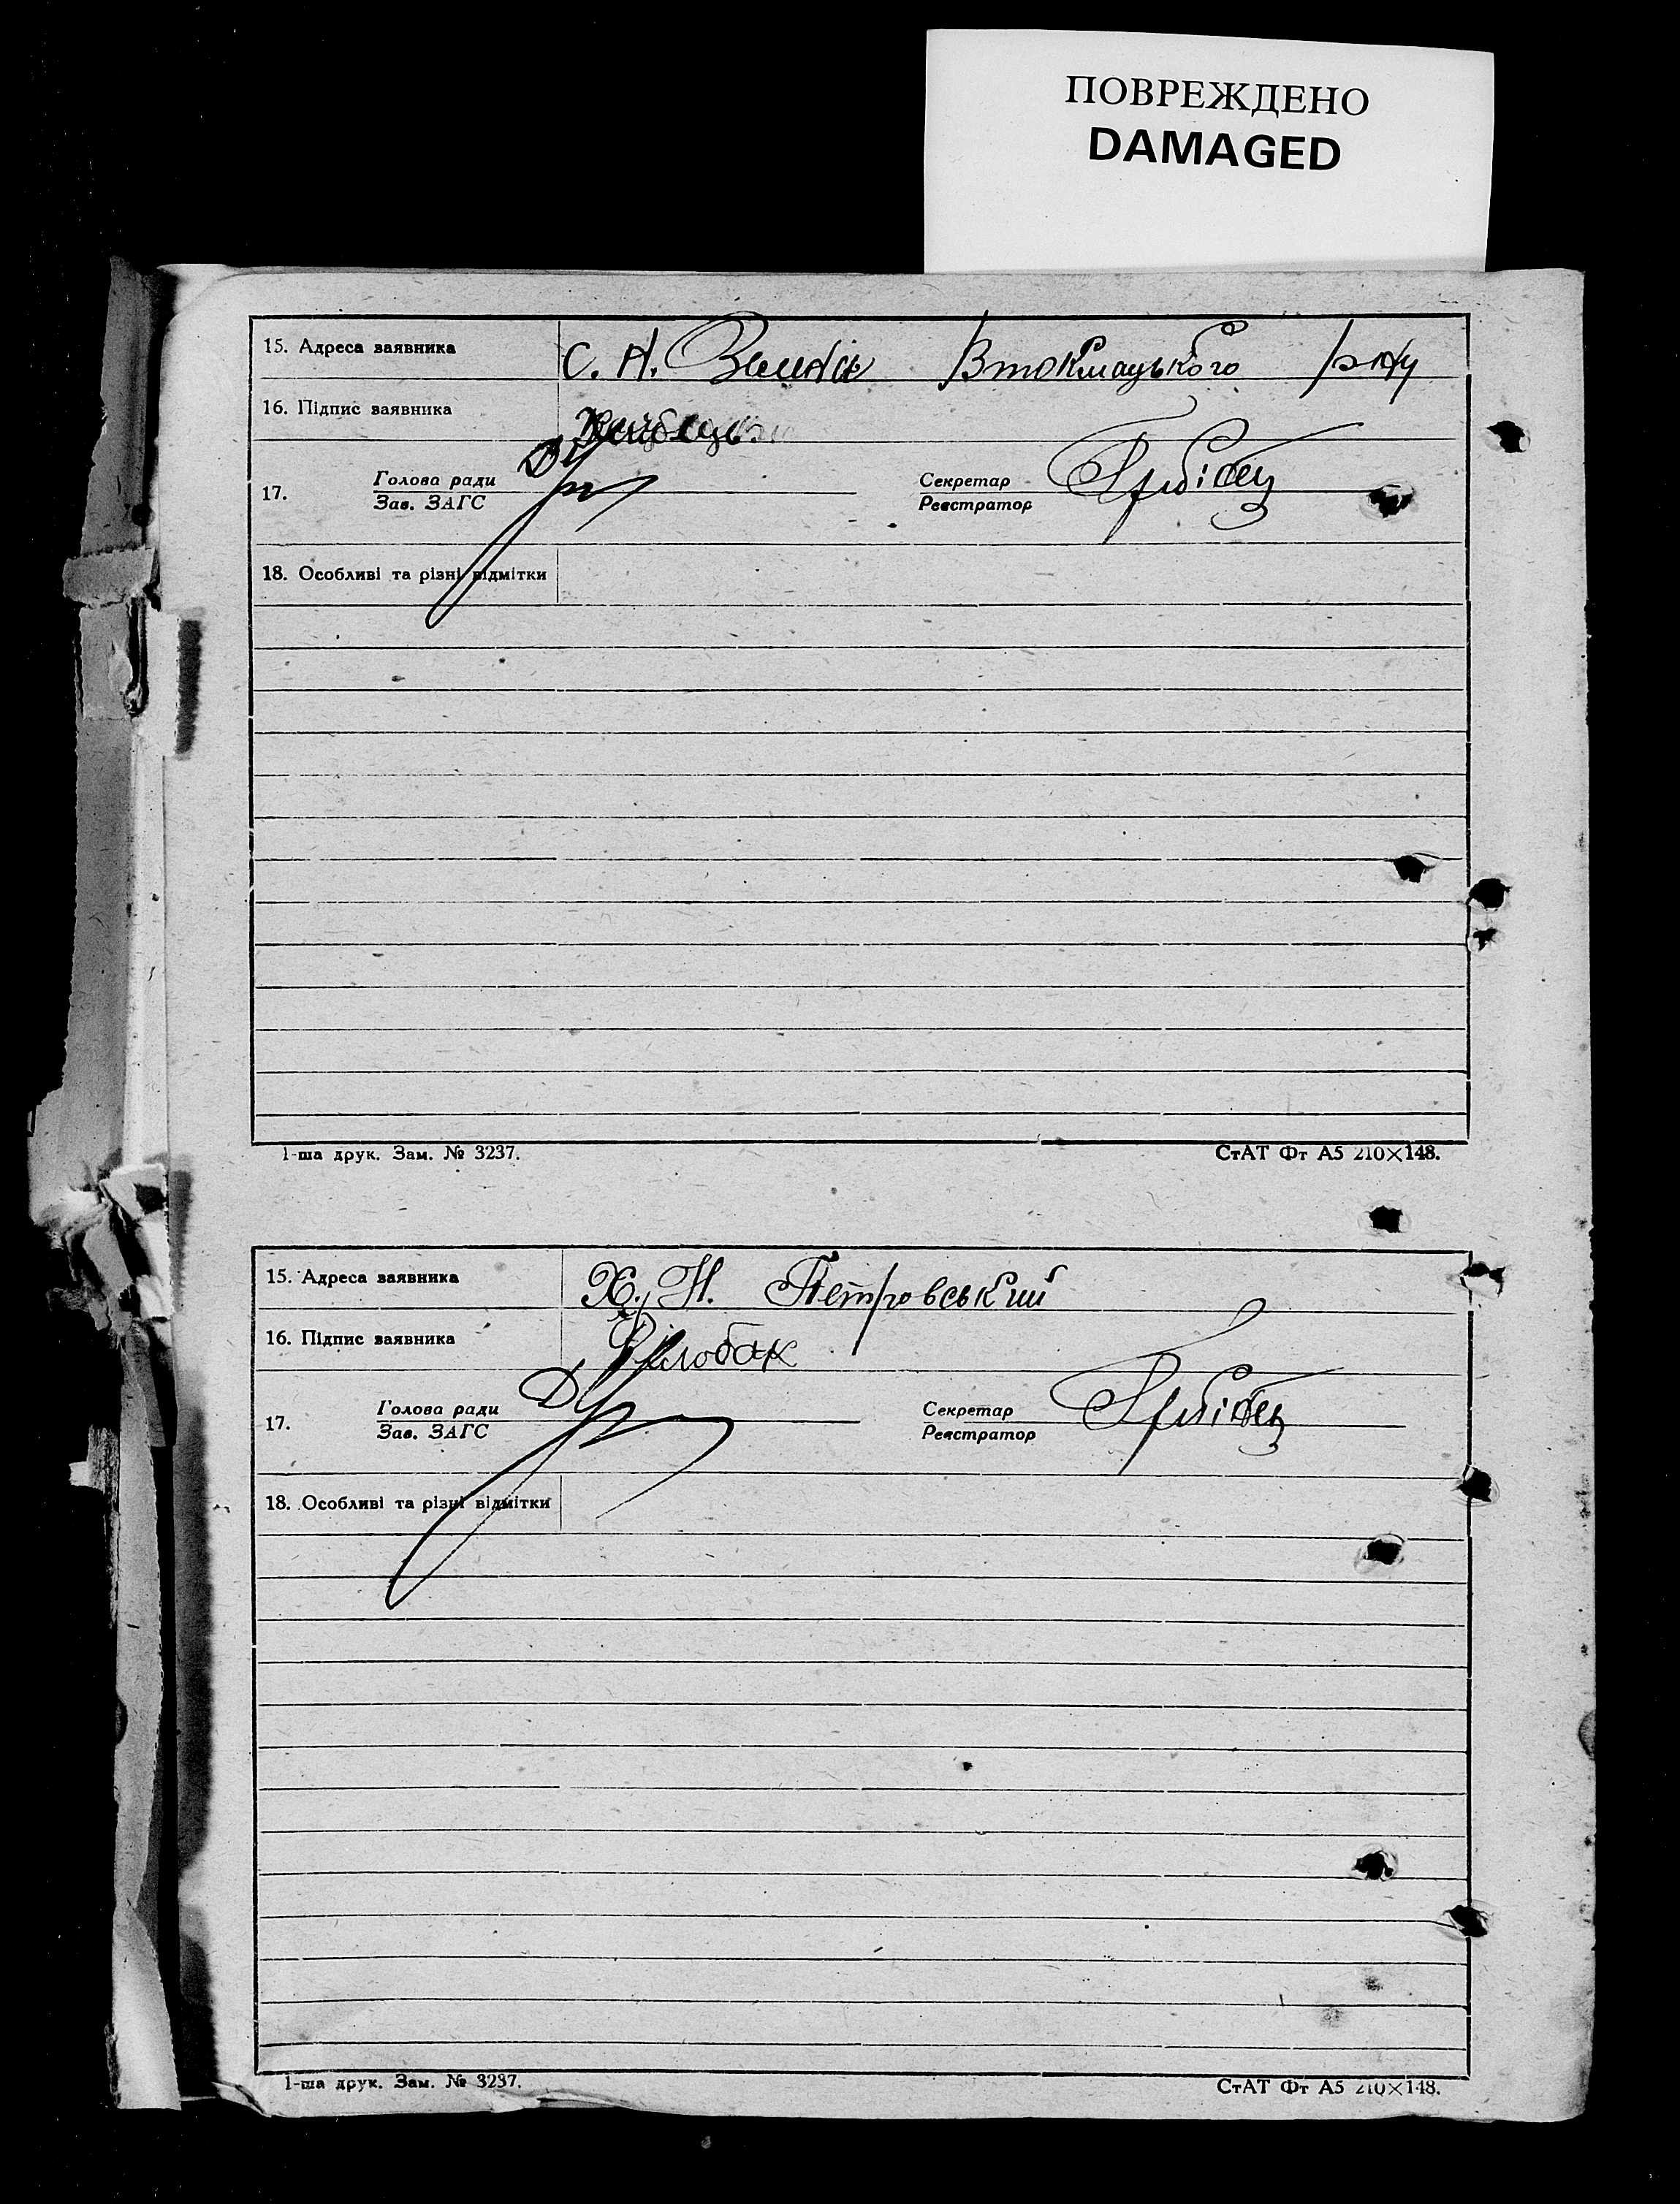 ПОВРЕЖДЕНО
DAMAGED
15. Адреса заявника С. Н. Втокмацького р-ну
16. Підпис заявника
17. Голова ради Секретар
Зав. ЗАГС Реєстратор
18. Особливі та різні відмітки
1-ша друк. Зам. № 3237. СтАТ Фт А5 210×148.
15. Адреса заявника Х. Н. Петровський
16. Підпис заявника Білобак
17. Голова ради Секретар
Зав. ЗАГС Реєстратор
18. Особливі та різні відмітки
1-ша друк. Зам. № 3237. СтАТ Фт А5 210×148.